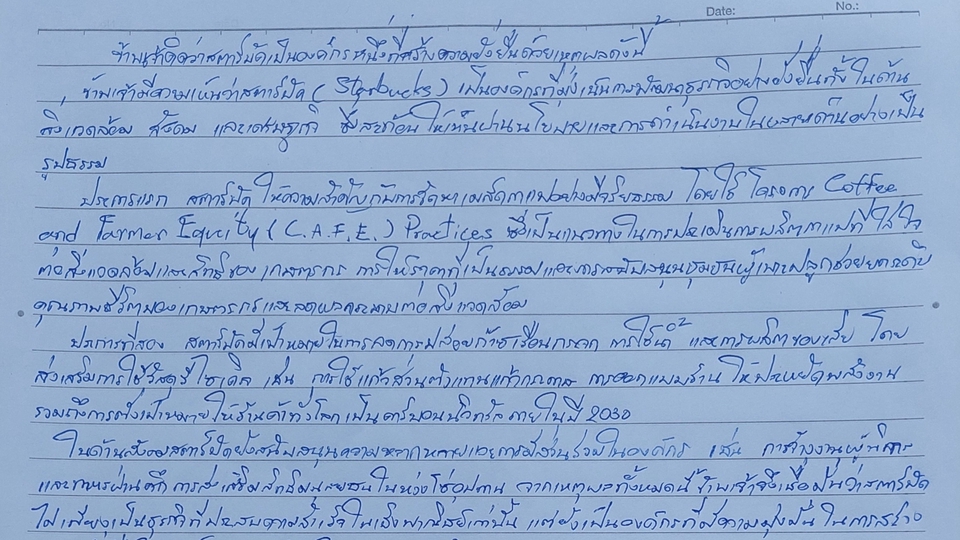 Date: No.:
ข้าพเจ้าคิดว่าสตาร์บัคเป็นองค์กรหนึ่งที่สร้างความยั่งยืนด้วยเหตุผลดังนี้
ข้าพเจ้ามีความเห็นว่าสตาร์บัค ( Starbucks ) เป็นองค์กรที่มุ่งเน้นการพัฒนาธุรกิจอย่างยั่งยืนทั้งในด้าน
สิ่งแวดล้อม สังคม และเศรษฐกิจ ซึ่งสะท้อนให้เห็นผ่านนโยบายและการดำเนินงานในหลายด้านอย่างเป็น
รูปธรรม
ประการแรก สตาร์บัคให้ความสำคัญกับการจัดหาเมล็ดกาแฟอย่างมีจริยธรรม โดยใช้โครงการ Coffee
and Farmer Equity ( C.A.F.E. ) Practices ซึ่งเป็นแนวทางในการประเมินการผลิตกาแฟที่ใส่ใจ
ต่อสิ่งแวดล้อมและสิทธิของเกษตรกร การให้ราคาที่เป็นธรรมและการสนับสนุนชุมชนผู้เพาะปลูกช่วยยกระดับ
คุณภาพชีวิตของเกษตรกรและลดผลกระทบต่อสิ่งแวดล้อม
ประการที่สอง สตาร์บัคมีเป้าหมายในการลดการปล่อยก๊าซเรือนกระจก การใช้น้ำ และการผลิตของเสีย โดย
ส่งเสริมการใช้วัสดุรีไซเคิล เช่น การใช้แก้วส่วนตัวแทนแก้วกระดาษ การออกแบบร้านให้ประหยัดพลังงาน
รวมถึงการตั้งเป้าหมายให้ร้านค้าทั่วโลกเป็นคาร์บอนนิวทรัลภายในปี 2030
ในด้านสังคมสตาร์บัคยังสนับสนุนความหลากหลายและการมีส่วนร่วมในองค์กร เช่น การจ้างงานผู้พิการ
และทหารผ่านศึก การส่งเสริมสิทธิมนุษยชนในห่วงโซ่อุปทาน จากเหตุผลทั้งหมดนี้ข้าพเจ้าจึงเชื่อมั่นว่าสตาร์บัค
ไม่เพียงเป็นธุรกิจที่ประสบความสำเร็จในเชิงพาณิชย์เท่านั้น แต่ยังเป็นองค์กรที่มีความมุ่งมั่นในการสร้าง